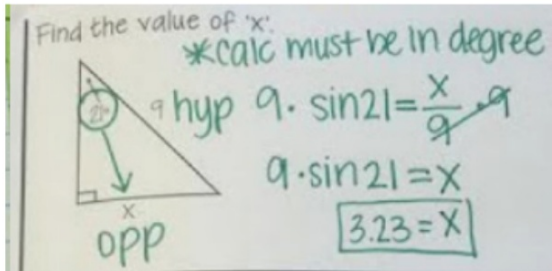 Find the value of 'x'.
*calc must be in degree
21°
9 hyp
9. sin21=x/9 .9
9.sin21=x
x
3.23=x
opp